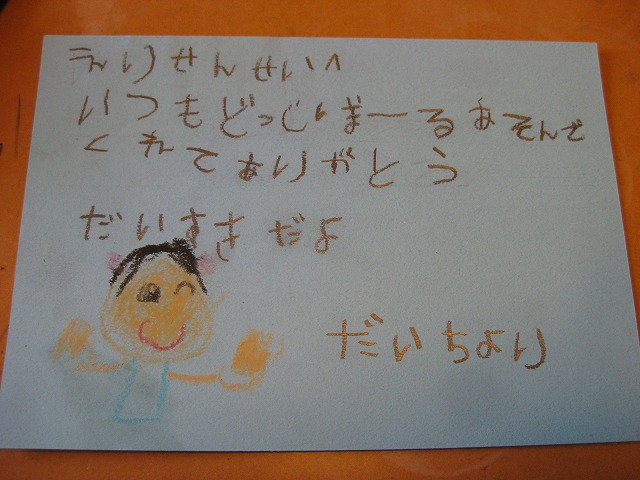 えりせんせいへ
いつもどっじぼーるあそんで
くれてありがとう
だいすきだよ
だいちより